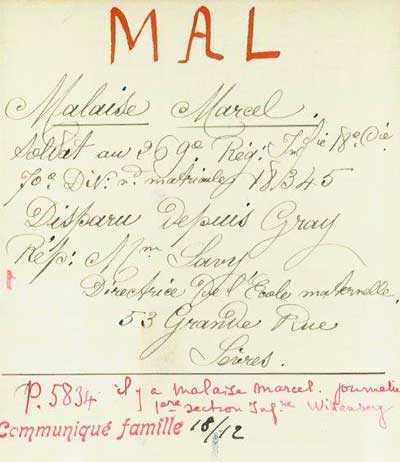 MAL
Malaise Marcel.
Soldat au 269e Rég: Inf ie 18e Cie
70e Div. n. matricule 18345
Disparu depuis Gray
Rép: Mm Savy
Directrice de l'Ecole maternelle
53 Grande Rue
Sèvres.
P. 5834 il y a Malaise Marcel.
1ère section Inf.rie Wittenberg
Communiqué famille 18/12